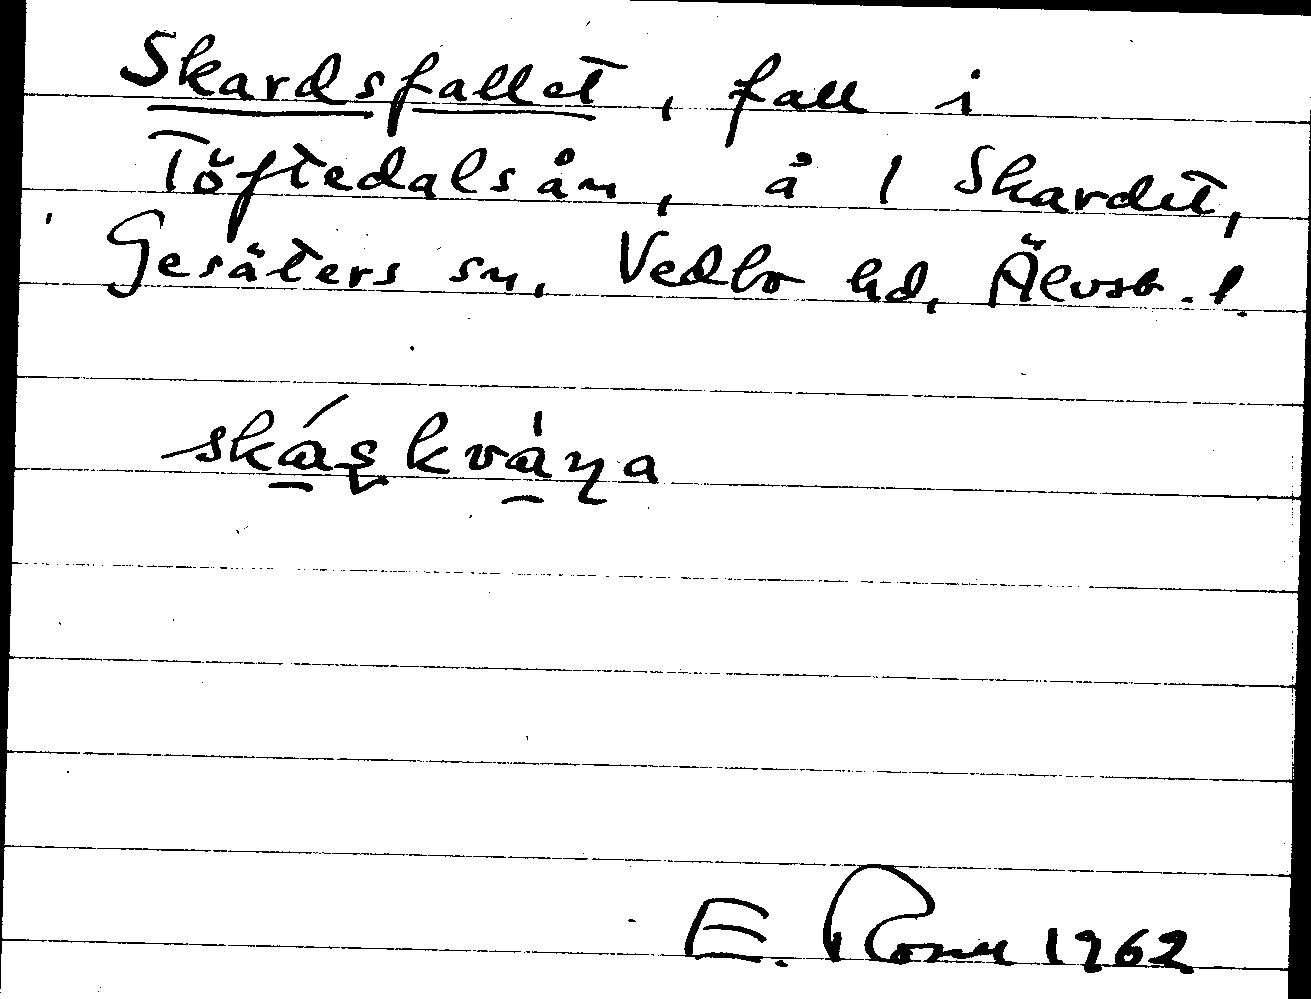 Skardsfallet, fall i
Töftedalsån, å 1 Skardet,
Gesäters sn, Vedbo hd, Älvsb. l.
skásk kvàŋa
E. 1962